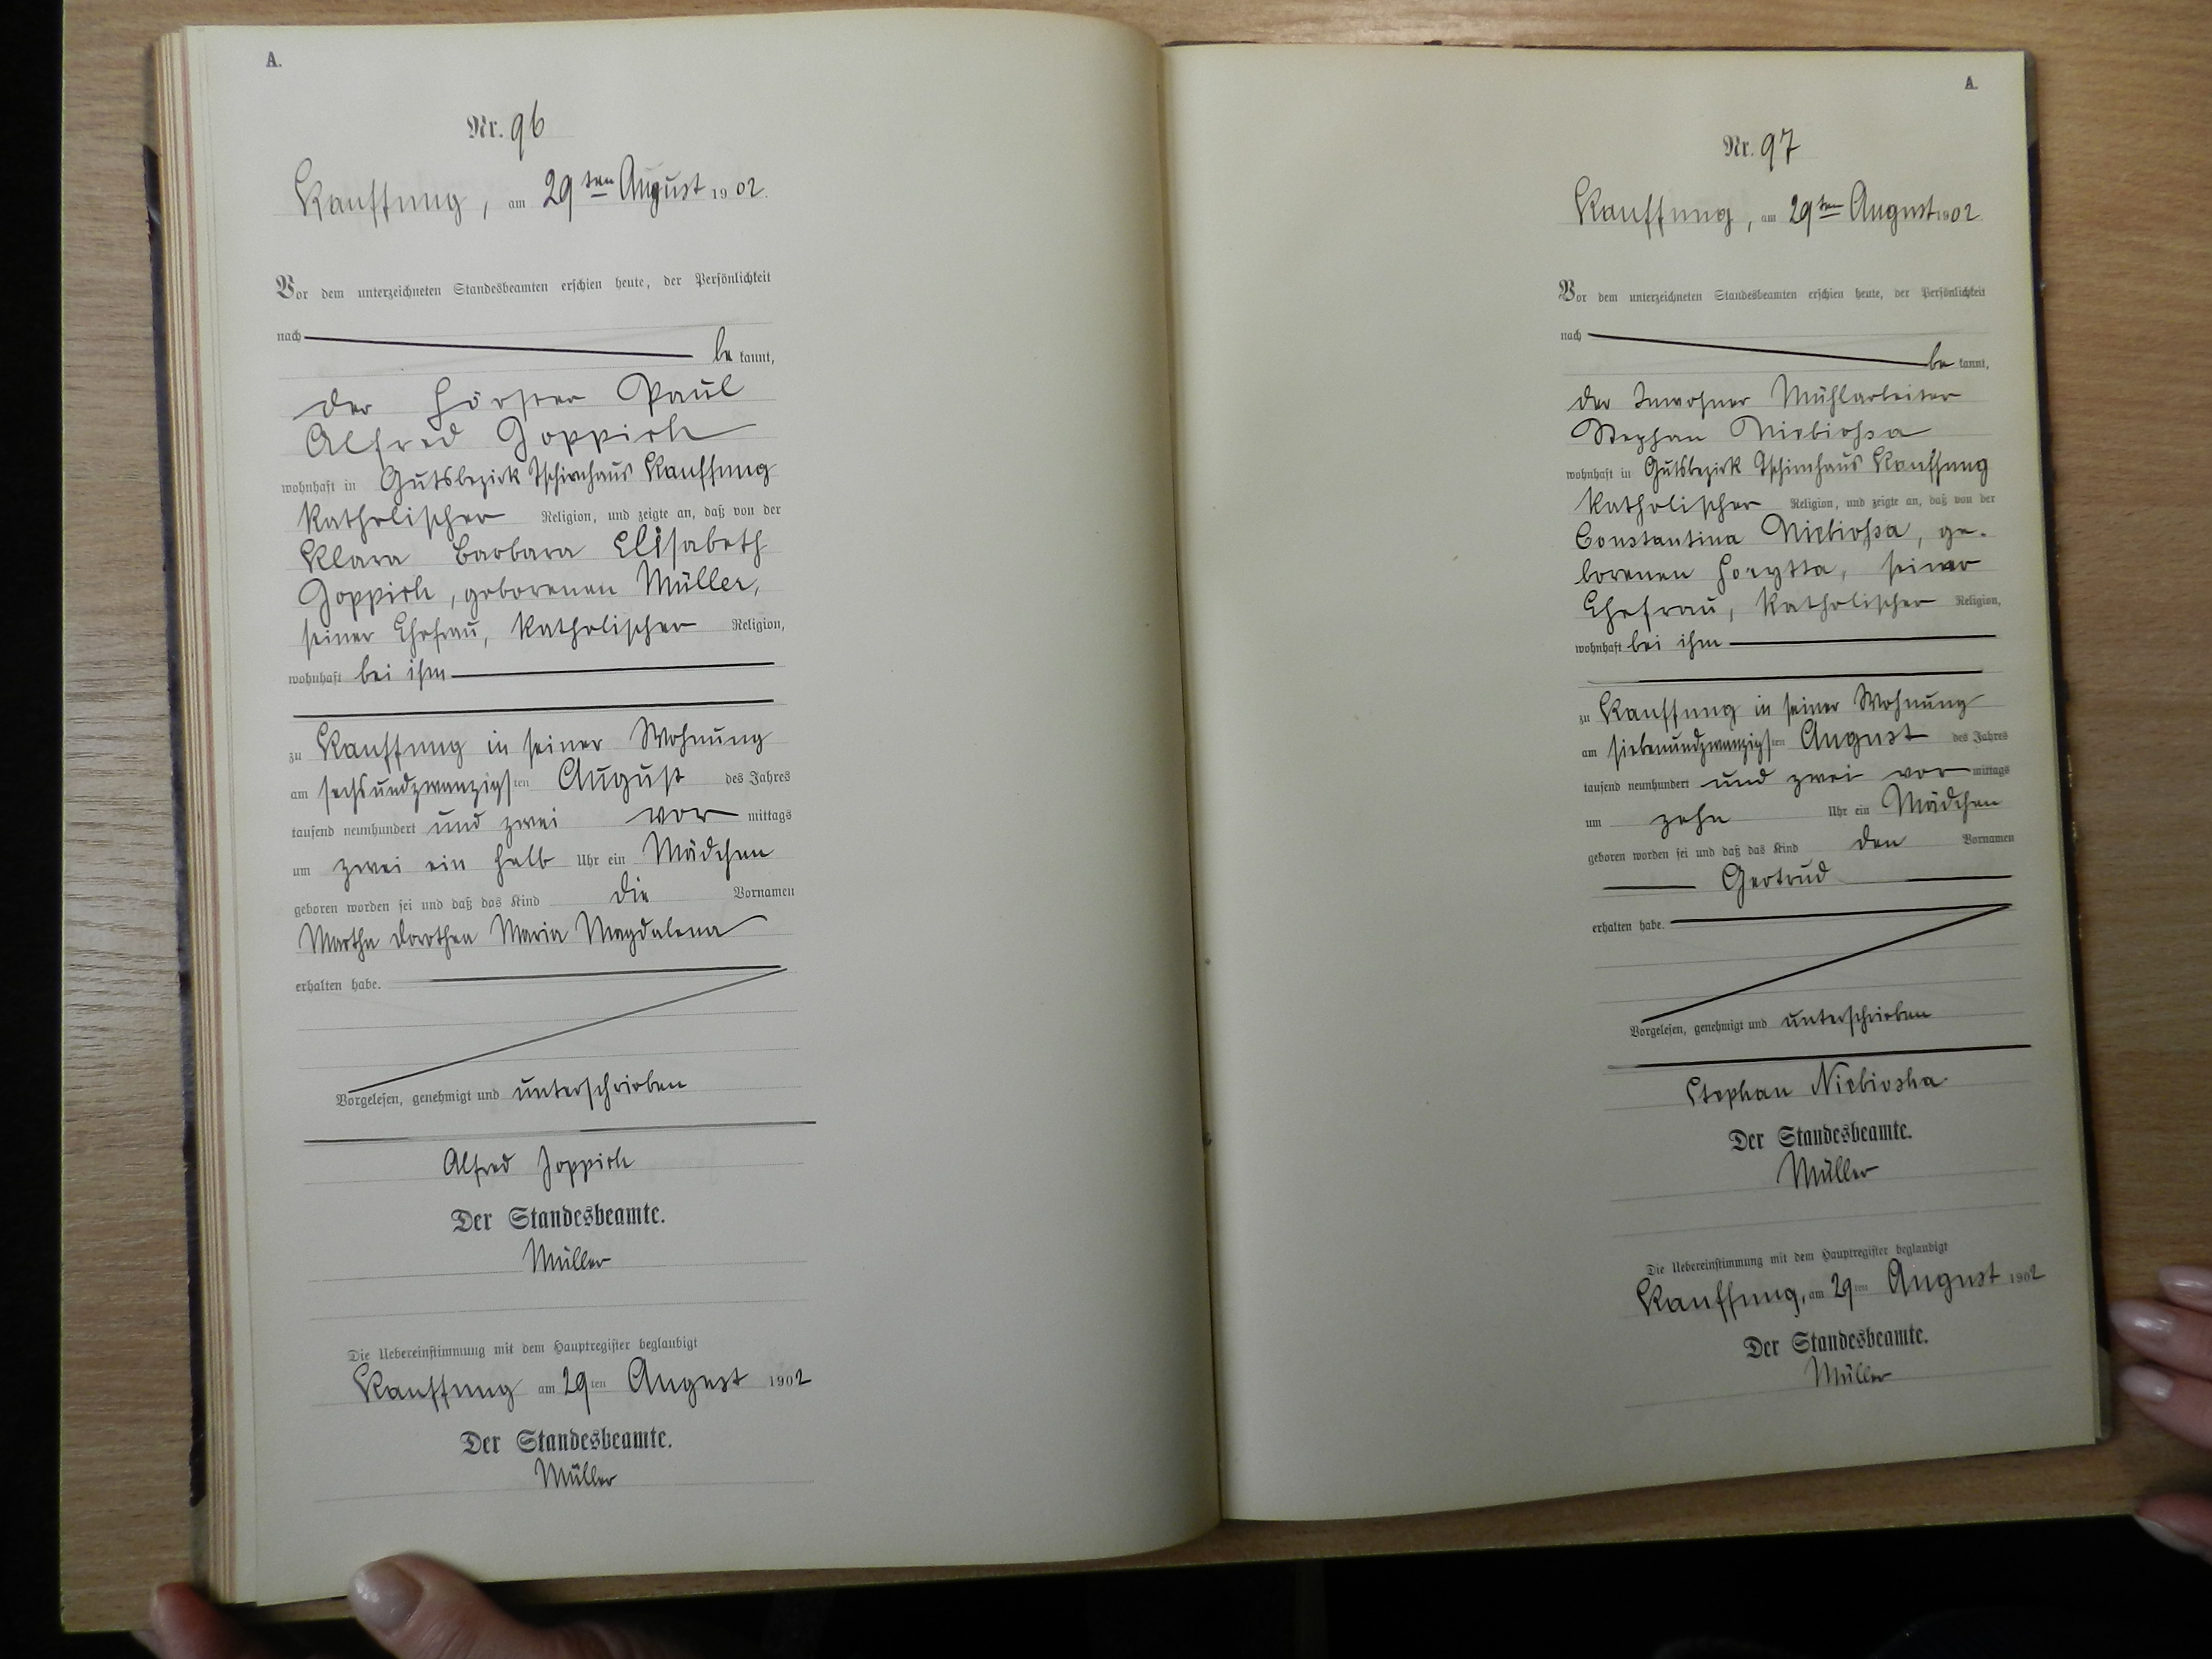 A.
Nr. 96
Kauffung, am 29ten August 1902.
Vor dem unterzeichneten Standesbeamten erschien heute, der Persönlichkeit
nach be kannt,
der Förster Paul
Alfred Joppich
wohnhaft in Gutsbezirk Tschirnhaus Kauffung
katholischer Religion, und zeigte an, daß von der
Klara Barbara Elisabeth
Joppich, geborenen Müller,
seiner Ehefrau, katholischer Religion,
wohnhaft bei ihm
zu Kauffung in seiner Wohnung
am sechsundzwanzigsten August des Jahres
tausend neunhundert und zwei vormittags
um zwei ein halb Uhr ein Mädchen
geboren worden sei und daß das Kind die Vornamen
Martha Dorothea Maria Magdalena
erhalten habe.
Vorgelesen, genehmigt und unterschrieben
Alfred Joppich
Der Standesbeamte.
Müller
Die Uebereinstimmung mit dem Hauptregister beglaubigt
Kauffung am 29ten August 1902
Der Standesbeamte.
Müller
A.
Nr. 97
Kauffung, am 29ten August 1902.
Vor dem unterzeichneten Standesbeamten erschien heute, der Persönlichkeit
nach be kannt,
der Inwohner Mühlarbeiter
Stephan Niebiossa
wohnhaft in Gutsbezirk Tschirnhaus Kauffung
katholischer Religion, und zeigte an, daß von der
Constantina Niebiossa, ge-
borenen seiner
Ehefrau, katholischer Religion,
wohnhaft bei ihm
zu Kauffung in seiner Wohnung
am siebenundzwanzigsten August des Jahres
tausend neunhundert und zwei vormittags
um zehn Uhr ein Mädchen
geboren worden sei und daß das Kind den Vornamen
Gertrud
erhalten habe.
Vorgelesen, genehmigt und unterschrieben
Stephan Niebiosha
Der Standesbeamte.
Müller
Die Uebereinstimmung mit dem Hauptregister beglaubigt
Kauffung, am 29ten August 1902
Der Standesbeamte.
Müller